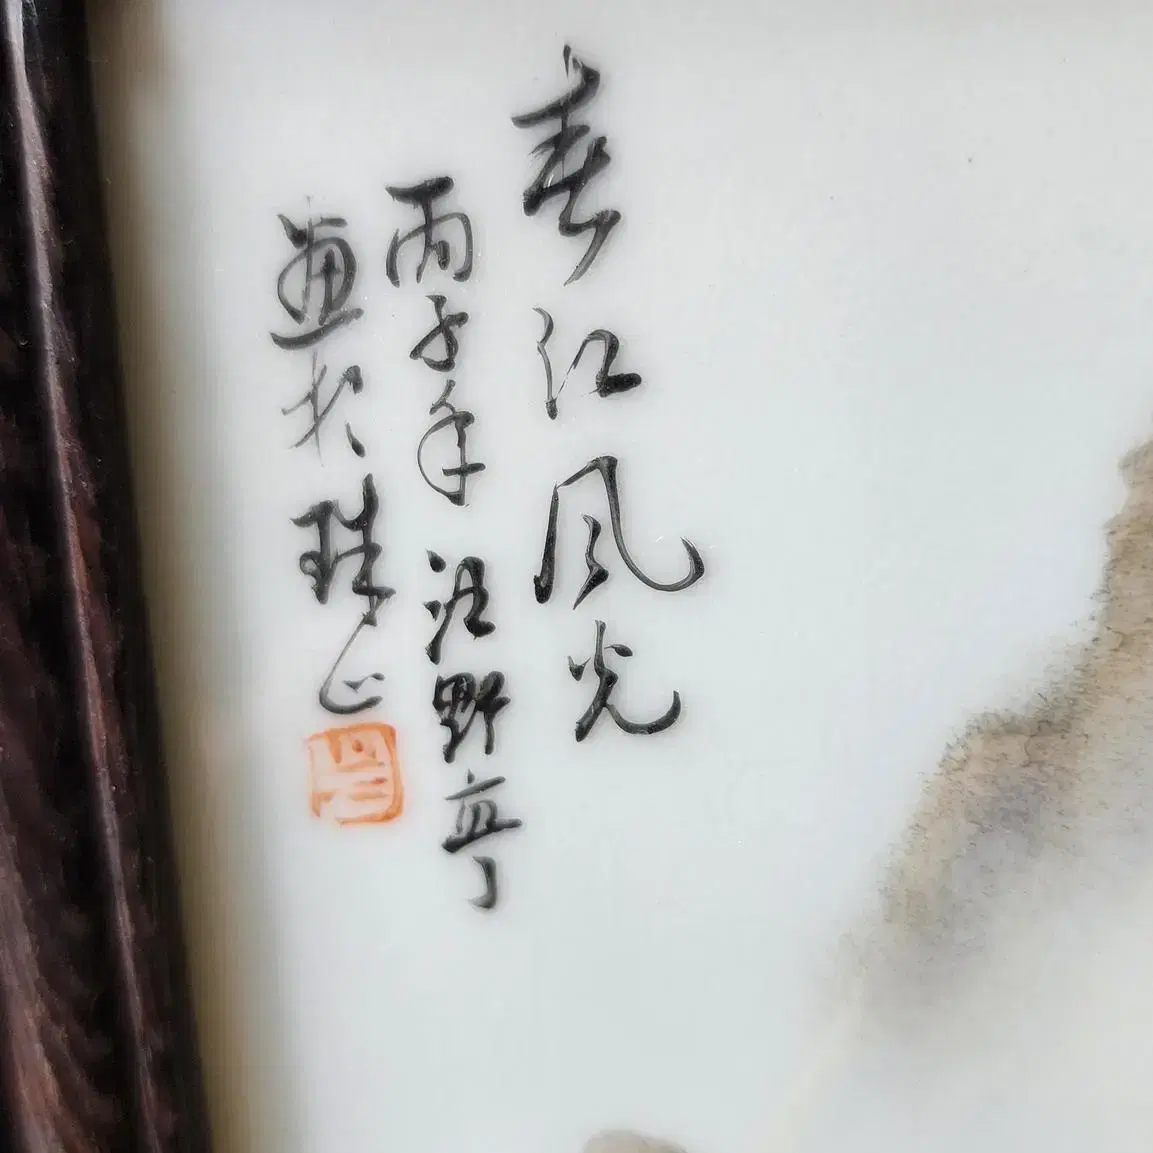 春江风光
丙子年汪野亭
画於珠山